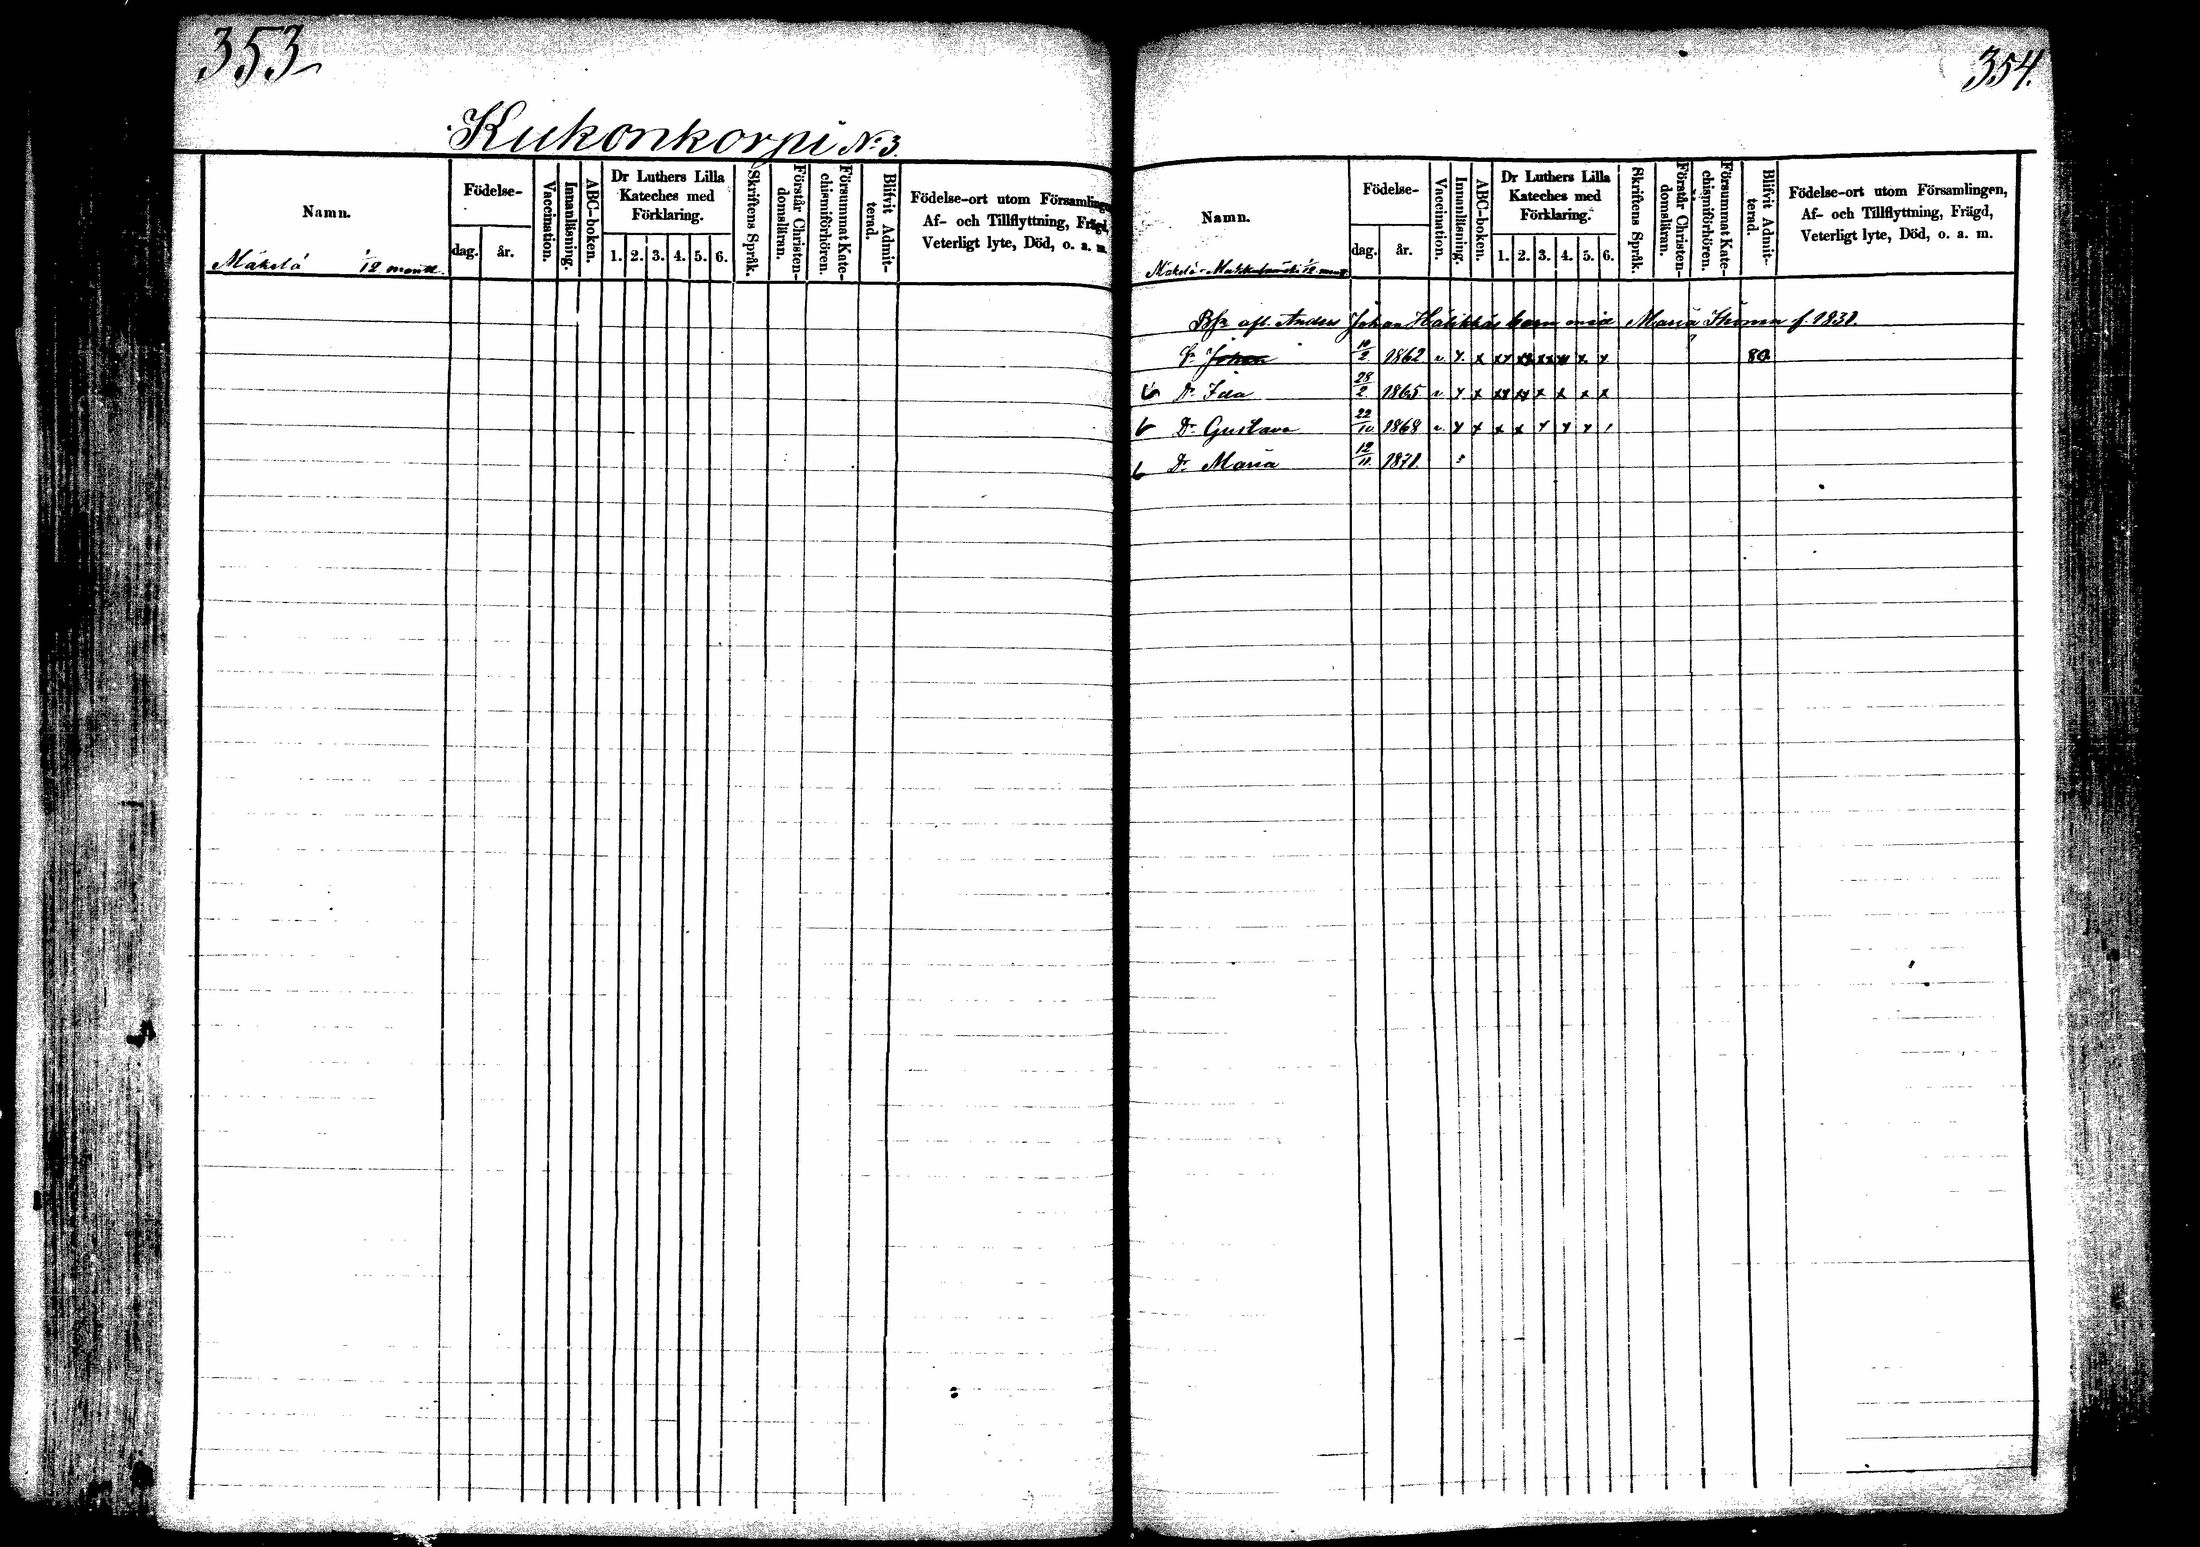 353
Kukonkorpi No 3.
Namn.
Födelse-
dag.
år.
Vaccination.
Innanläsning.
ABC-boken.
Dr Luthers Lilla
Kateches med
Förklaring.
1. 2. 3. 4. 5. 6.
Skriftens Språk.
Förstår Christen-
domsläran.
Försummat Kate-
chismiförhören.
Blifvit Admit-
terad.
Födelse-ort utom Församlingen,
Af- och Tillflyttning, Frägd,
Veterligt lyte, Död, o. a. m.
Mäkelä 1/12 mantl.
354.
Namn.
Födelse-
dag.
år.
Vaccination.
Innanläsning.
ABC-boken.
Dr Luthers Lilla
Kateches med
Förklaring.
1. 2. 3. 4. 5. 6.
Skriftens Språk.
Förstår Christen-
domsläran.
Försummat Kate-
chismiförhören.
Blifvit Admit-
terad.
Födelse-ort utom Församlingen,
Af- och Tillflyttning, Frägd,
Veterligt lyte, Död, o. a. m.
Mäkelä 1/12
afl. Anders Johan barn med Maria f. 1831.
Johan 10/2 1862 v. x x xx xx xx x x 80
Dr Ida 28/2 1865 v. x x xx xx x x x x
Dr Gustava 22/10 1868 v. x x x x x x x
Dr Maria 12/11 1871.